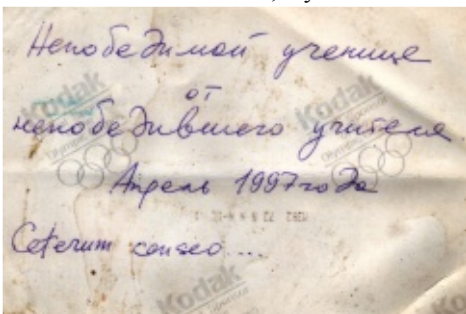 Непобедимой ученице
от
непобедившего учителя
Апрель 1997 года
Ceterum censeo...
Kodak
Kodak
Kodak